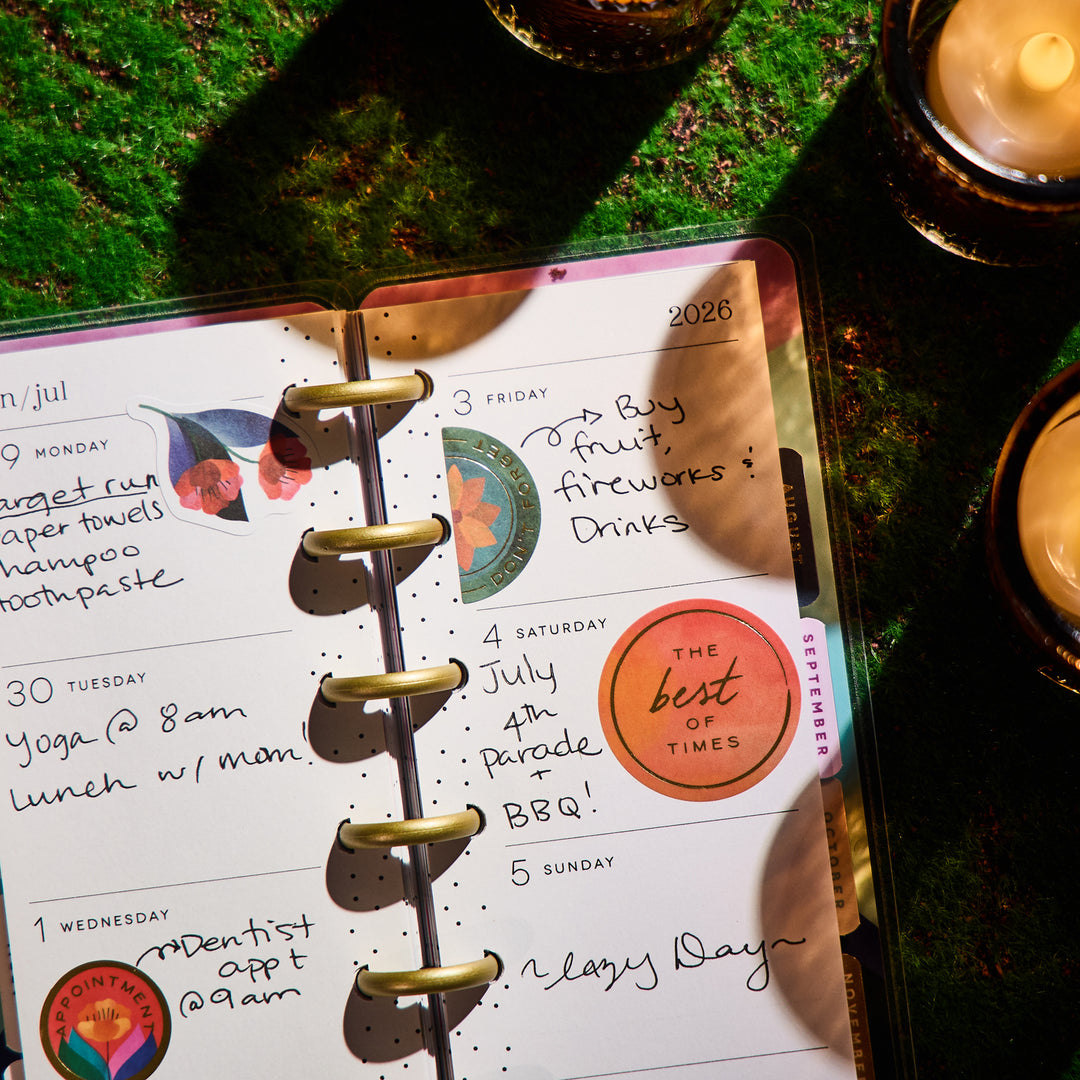 n/jul
9 MONDAY
arget run
aper towels
hampoo
toothpaste
30 TUESDAY
Yoga @ 8am
Lunch w/ mom!
1 WEDNESDAY
Dentist
appt
@9am
APPOINTMENT
2026
3 FRIDAY
Buy
fruit,
fireworks &
Drinks
DON'T FORGET
4 SATURDAY
July
4th
parade
+
BBQ!
THE
best
OF
TIMES
5 SUNDAY
~lazy Day~
AUGUST
SEPTEMBER
OCTOBER
NOVEMBER